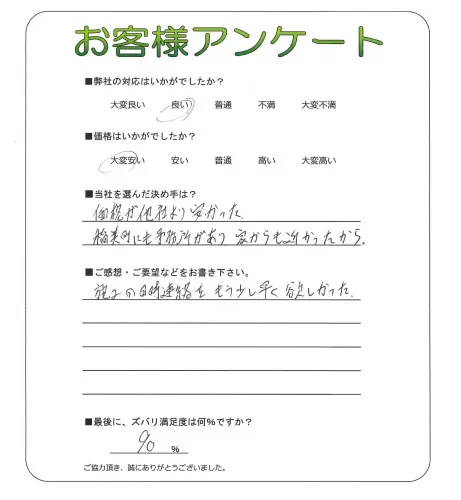 お客様アンケート
■弊社の対応はいかがでしたか？
大変良い 良い 普通 不満 大変不満
■価格はいかがでしたか？
大変安い 安い 普通 高い 大変高い
■当社を選んだ決め手は？
価格が他社より安かった。
稲美町にも事務所があり 家からも近かったから。
■ご感想・ご要望などをお書き下さい。
施工の日時連絡を もう少し早く 欲しかった。
■最後に、ズバリ満足度は何％ですか？
90 ％
ご協力頂き、誠にありがとうございました。